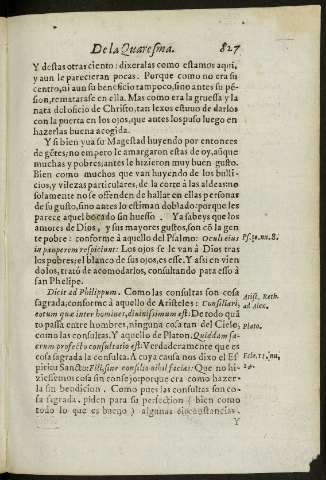 De la Quaresma. 827
Y destas otras ciento: dixeralas como estamos aqui,
y aun le parecieran pocas. Porque como no era su
centro, ni aun su beneficio tampoco, sino antes su pẽ-
sion, rematarase en ella. Mas como era la gruessa y la
nata del oficio de Christo, tan lexos estuuo de darlos
con la puerta en los ojos, que antes los puso luego en
hazerlas buena acogida.
Y si bien yua su Magestad huyendo por entonces
de gẽtes; no empero le amargaron estas de oy, aũque
muchas y pobres; antes le hizieron muy buen gusto.
Bien como muchos que van huyendo de los bulli-
cios, y vilezas particulares, de la corte à las aldeas: no
solamente no se offenden de hallar en ellas personas
de su gusto, sino antes lo estiman doblado: porque les
parece aquel bocado sin huesso. Ya sabeys que los
amores de Dios, y sus mayores gustos, son cõ la gen
te pobre: conforme à aquello del Psalmo: Oculi eius Ps.10.nu.8.
in pauperem respiciunt: Los ojos se le van à Dios tras
los pobres; el blanco de sus ojos, es esse. Y assi en vien
dolos, tratò de acomodarlos, consultando para esso à
san Phelipe.
Dicit ad Philippum. Como las consultas son cosa
sagrada; conforme à aquello de Aristeles: Consiliari, Arist. Reth.
eorum quæ inter homines, diuinissimum est: De todo quã ad Alex.
to passa entre hombres, ninguna cosa tan del Cielo, Plato.
como las consultas. Y aquello de Platon. Quiddam sa-
crum profecto consultatio est: Verdaderamente que es
cosa sagrada la consulta. A cuya causa nos dixo el Es Ecle.32.nu,
piritu Sancto: Fili, sine consilio nihil facias: Que no hi 24.
ziessemos cosa sin consejo: porque era como hazer-
la sin bendicion. Como pues las consultas son co-
sa sagrada, piden para su perfection (bien como
todo lo que es bueno) algunas circunstancias.
Y